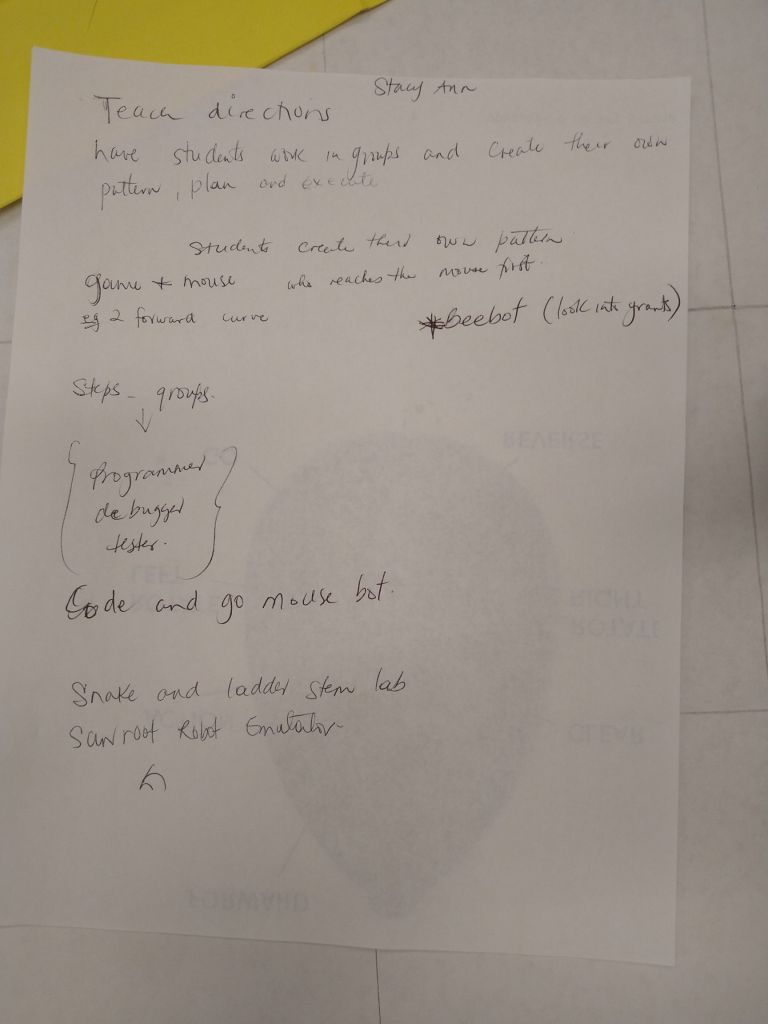 Stacy Ann
Teach directions
have students work in groups and create their own
pattern, plan and execute
Students create their own pattern
game + mouse who reaches the mouse first.
eg 2 forward curve
*beebot (look into grants)
Steps - groups.
↓
{ Programmer
debugger
tester. }
Code and go mouse bot.
Snake and ladder stem lab
Sawroot Robot Emulator
GO
REVERSE
LEFT
RIGHT
ROTATE
CLEAR
FORWARD